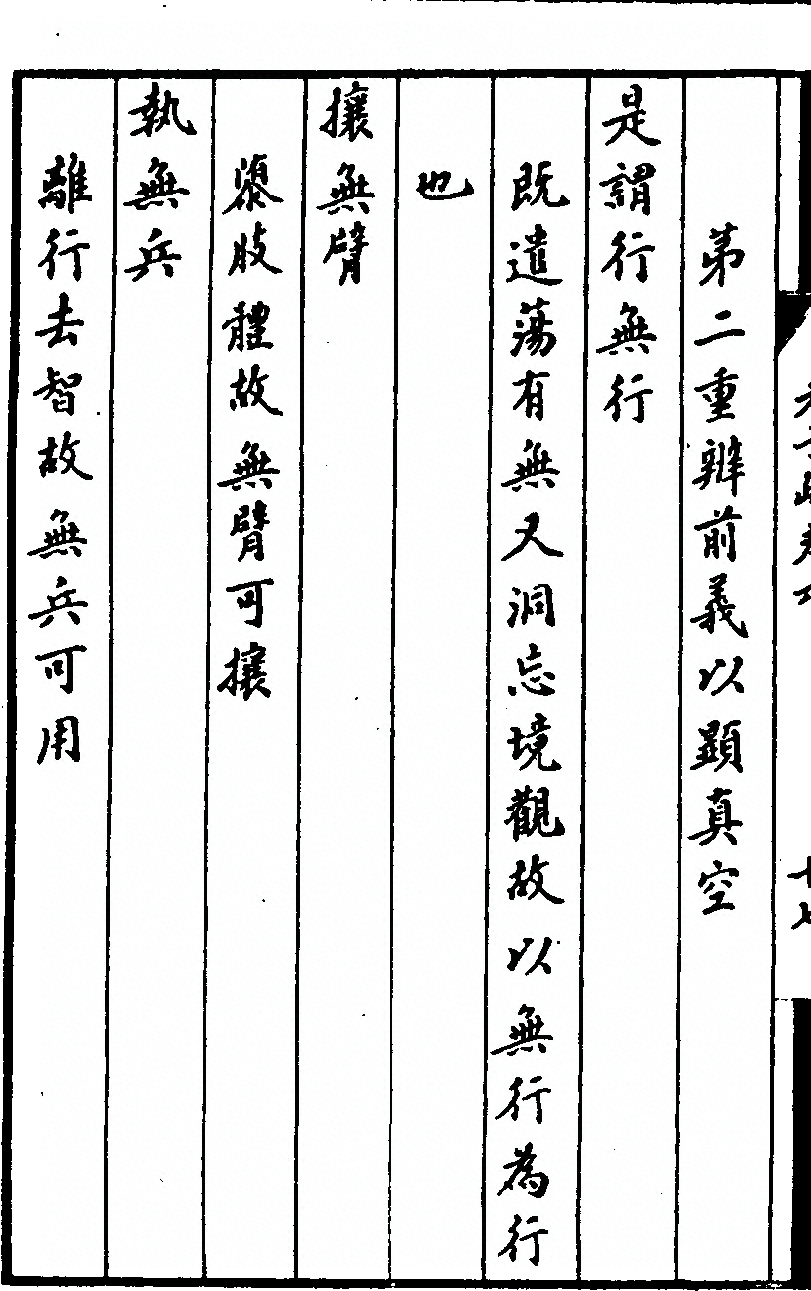 第二重辨前義以顯真空
是謂行無行
既遣蕩有無又洞忘境觀故以無行為行
也
攘無臂
肢體故無臂可攘
執無兵
離行去智故無兵可用